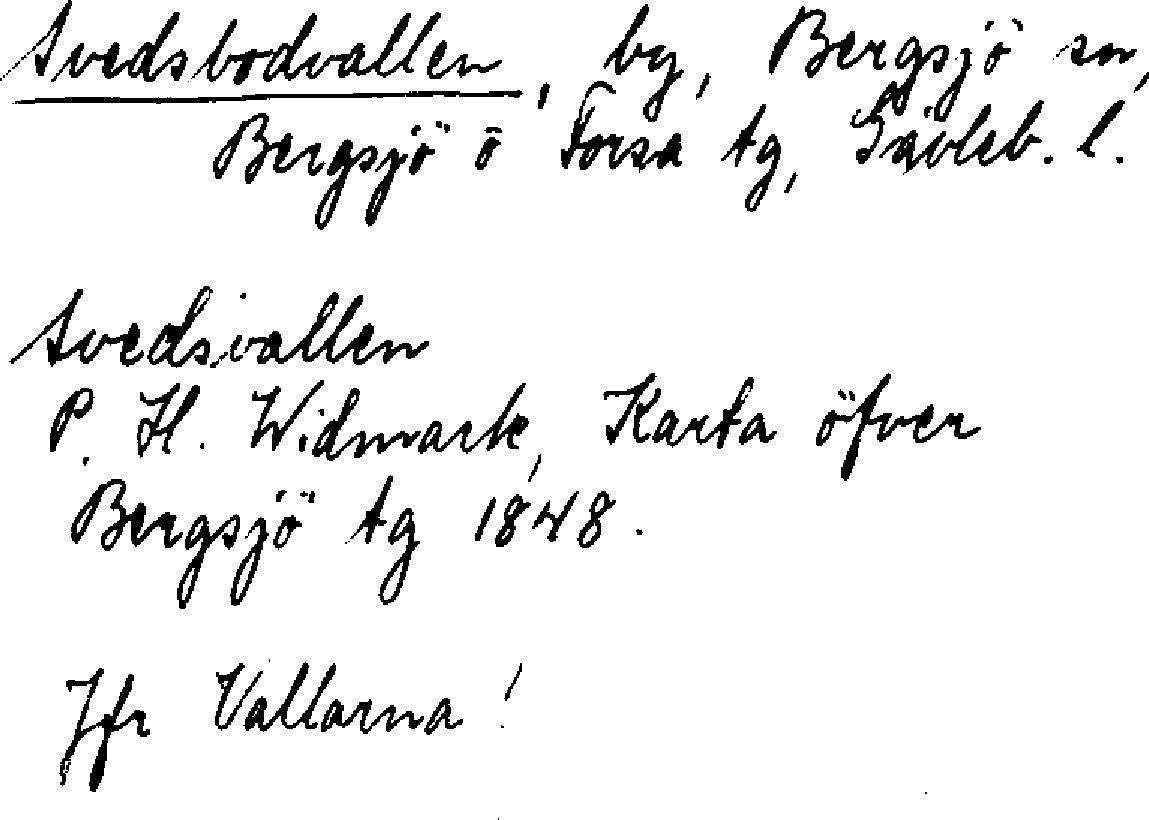 Svedsbodvallen, by, Bergsjö sn,
Bergsjö ō Forsa tg, Gävleb. l.
Svedsvallen
P. H. Widmark, Karta öfver
Bergsjö tg 1848.
Jfr Vallarna!